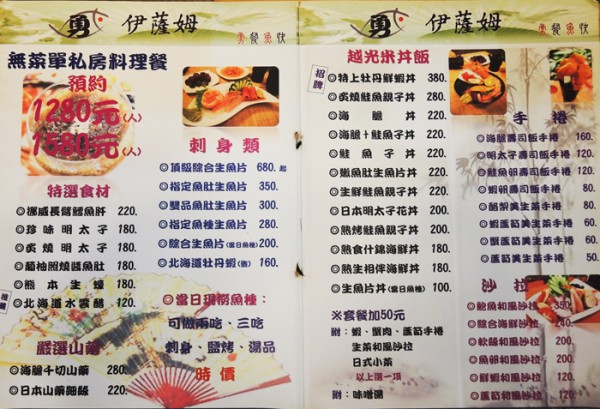 勇 伊薩姆
無菜單私房料理餐
預約
1280元(人)
1580元(人)
特選食材
◎挪威長鰭鱈魚肝 220.
◎珍味明太子 180.
◎炙燒明太子 180.
◎葡柚照燒醬魚肚 180.
◎熊本生蠔 180.
推薦
◎北海道水雲醋 160.
嚴選山藥
◎海膽千切山藥 280.
◎日本山藥細麵 220.
刺身類
◎頂級綜合生魚片 680.起
◎指定魚肚生魚片 350.
◎雙品魚肚生魚片 300.
◎指定魚種生魚片 250.
◎綜合生魚片(當日魚種) 200.
◎北海道牡丹蝦(隻) 160.
◎當日現撈魚種：
可做兩吃、三吃
刺身、鹽烤、湯品
時價
勇 伊薩姆
越光米丼飯
招牌
◎特上牡丹鮮蝦丼 380.
◎炙燒鮭魚親子丼 280.
◎海膽丼 220.
◎海膽+鮭魚子丼 220.
◎鮭魚子丼 220.
◎嫩魚肚生魚片丼 220.
◎生鮮鮭魚親子丼 220.
◎日本明太子花丼 220.
◎熟烤鮭魚親子丼 200.
◎熟食什錦海鮮丼 180.
◎熟生相伴海鮮丼 180.
◎生魚片丼(當日魚種) 100.
※套餐加50元
附：蝦、蟹肉、蘆筍手捲
生菜和風沙拉
日式小菜
以上選一項
附：味噌湯
手捲
◎海膽壽司飯手捲 160.
◎明太子壽司飯手捲 120.
◎鮭魚卵壽司飯手捲 100.
◎蝦卵壽司飯手捲 80.
◎酪梨美生菜手捲 60.
◎蝦蘆筍美生菜手捲 60.
◎蘆筍美生菜手捲 50.
沙拉
◎鮑魚和風沙拉 350.
◎綜合海鮮沙拉 240.
◎軟殼和風沙拉 200.
◎魚卵和風沙拉 200.
◎鮮蝦和風沙拉 200.